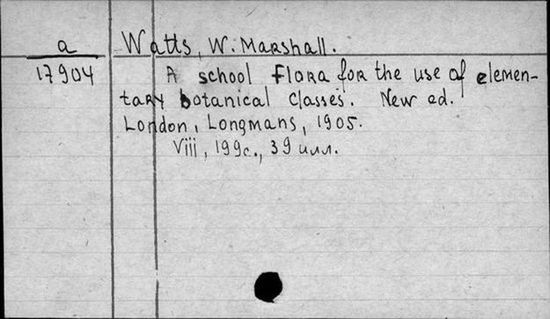 a
17904
Watts, W. Marshall.
A school flora for the use of elemen-
tary botanical classes. New ed.
London, Longmans, 1905.
Viii, 199с., 39 илл.